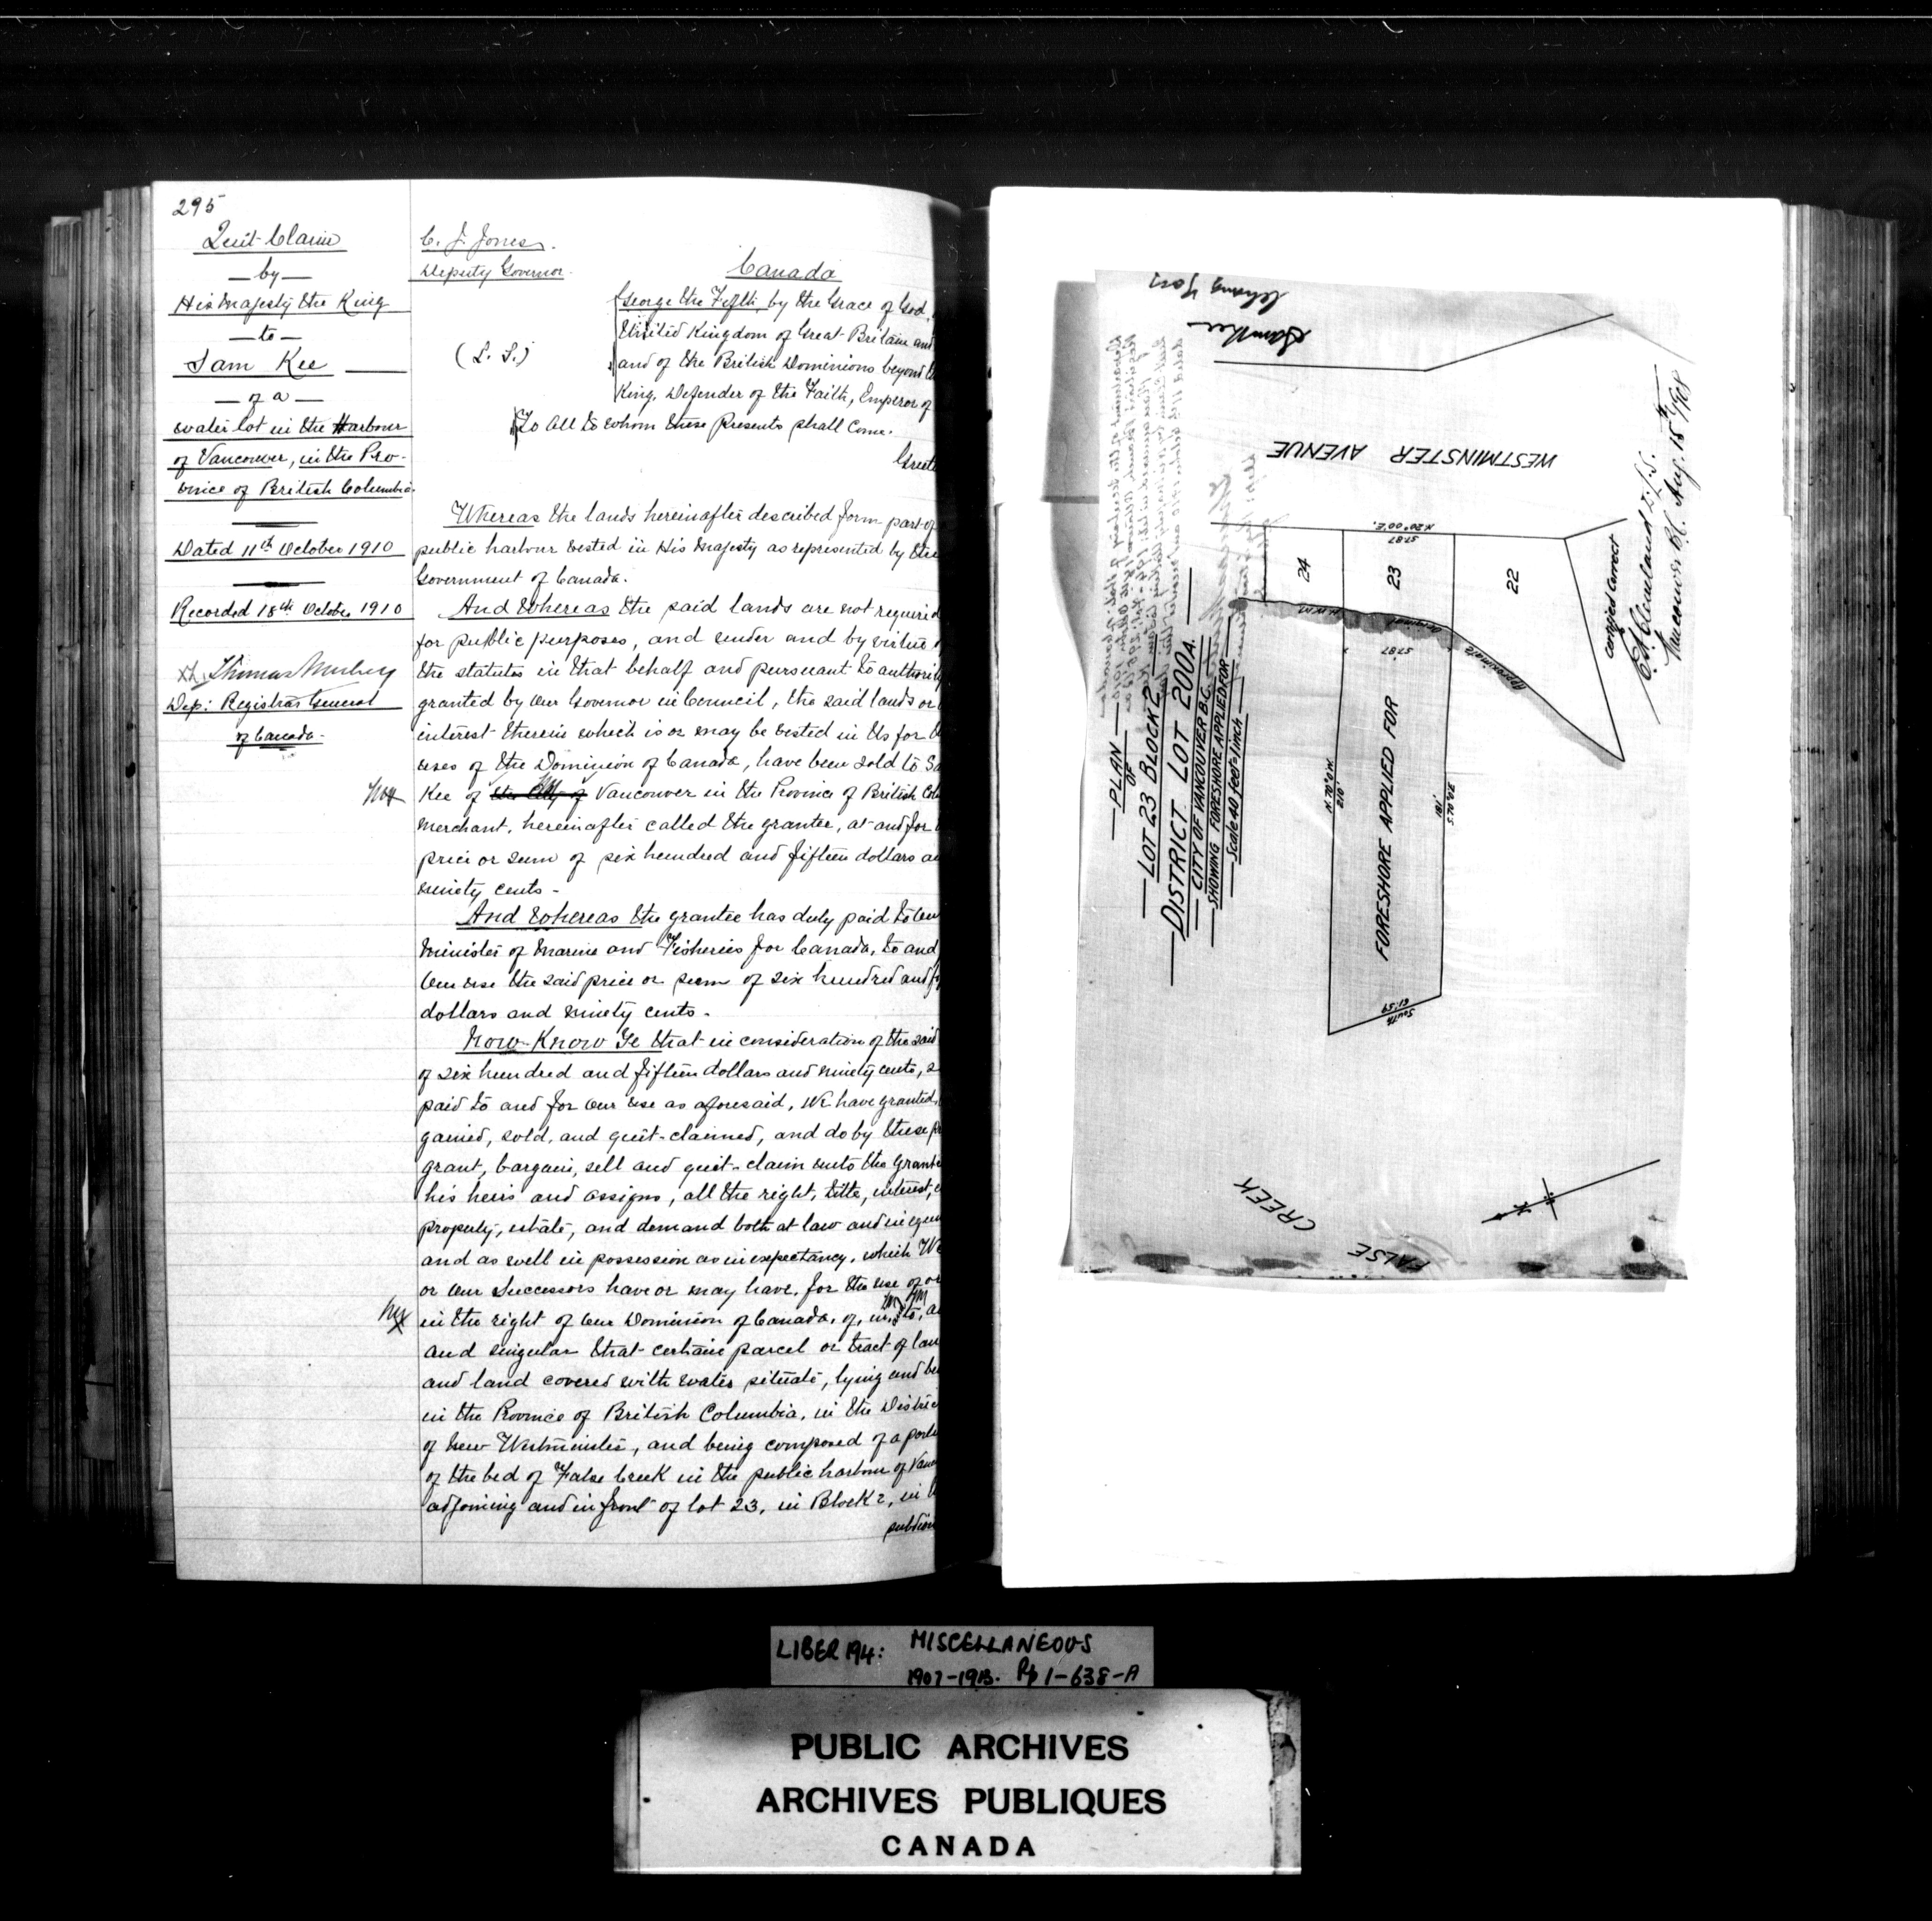 295
Quit Claim
— by —
His Majesty the King
— to —
Sam Kee
— of a —
water lot in the Harbour
of Vancouver, in the Pro-
vince of British Columbia.
Dated 11th October 1910
Recorded 18th October 1910
Dep: Registrar General
of Canada.
C. J. Jones.
Deputy Governor.
(L. S.)
Canada
George the Fifth, by the Grace of God,
United Kingdom of Great Britain and
and of the British Dominions beyond
King, Defender of the Faith, Emperor of
To All to whom these Presents shall Come.
Whereas the lands hereinafter described form part of
public harbour vested in His Majesty as represented by the
Government of Canada.
And Whereas the said lands are not required
for public purposes, and under and by virtue
the statutes in that behalf and pursuant to authority
granted by Our Governor in Council, the said lands or
interest therein which is or may be vested in Us for
uses of the Dominion of Canada, have been sold to
Kee of the City of Vancouver in the Province of British
Merchant, hereinafter called the grantee, at and for
price or sum of six hundred and fifteen dollars
ninety cents -
And Whereas the grantee has duly paid to Our
Minister of Marine and Fisheries for Canada, to and
Our use the said price or sum of six hundred and
dollars and ninety cents -
Now Know Ye that in consideration of the said
of six hundred and fifteen dollars and ninety cents,
paid to and for Our use as aforesaid, We have granted,
gained, sold, and quit-claimed, and do by these
grant, bargain, sell and quit-claim unto the
his heirs and assigns, all the right, title, interest,
property, estate, and demand both at law and in
and as well in possession as in expectancy, which We
or Our Successors have or may have, for the use of or
in the right of Our Dominion of Canada, of, in, to,
and singular that certain parcel or tract of
and land covered with water situate, lying and
in the Province of British Columbia, in the
of New Westminster, and being composed of a
of the bed of False Creek in the public harbour of
adjoining and in front of lot 23, in Block 2, in
— PLAN —
OF
— LOT 23 BLOCK 2 —
— DISTRICT LOT 200A. —
— CITY OF VANCOUVER B.C. —
— SHOWING FORESHORE APPLIED FOR —
— Scale 40 feet = 1 inch —
Sam Kee
WESTMINSTER AVENUE
N.20°00'E.
57.87
24
23
22
H.W.M.
Original
Approximate
57.87
N.70°0'W.
210'
FORESHORE APPLIED FOR
181'
S.70°0'E.
South
61.59
FALSE CREEK
certified correct
Vancouver B.C. Aug. 15th 1908
LIBER 194: MISCELLANEOUS
1907-1913. Pp 1-638-A
PUBLIC ARCHIVES
ARCHIVES PUBLIQUES
CANADA